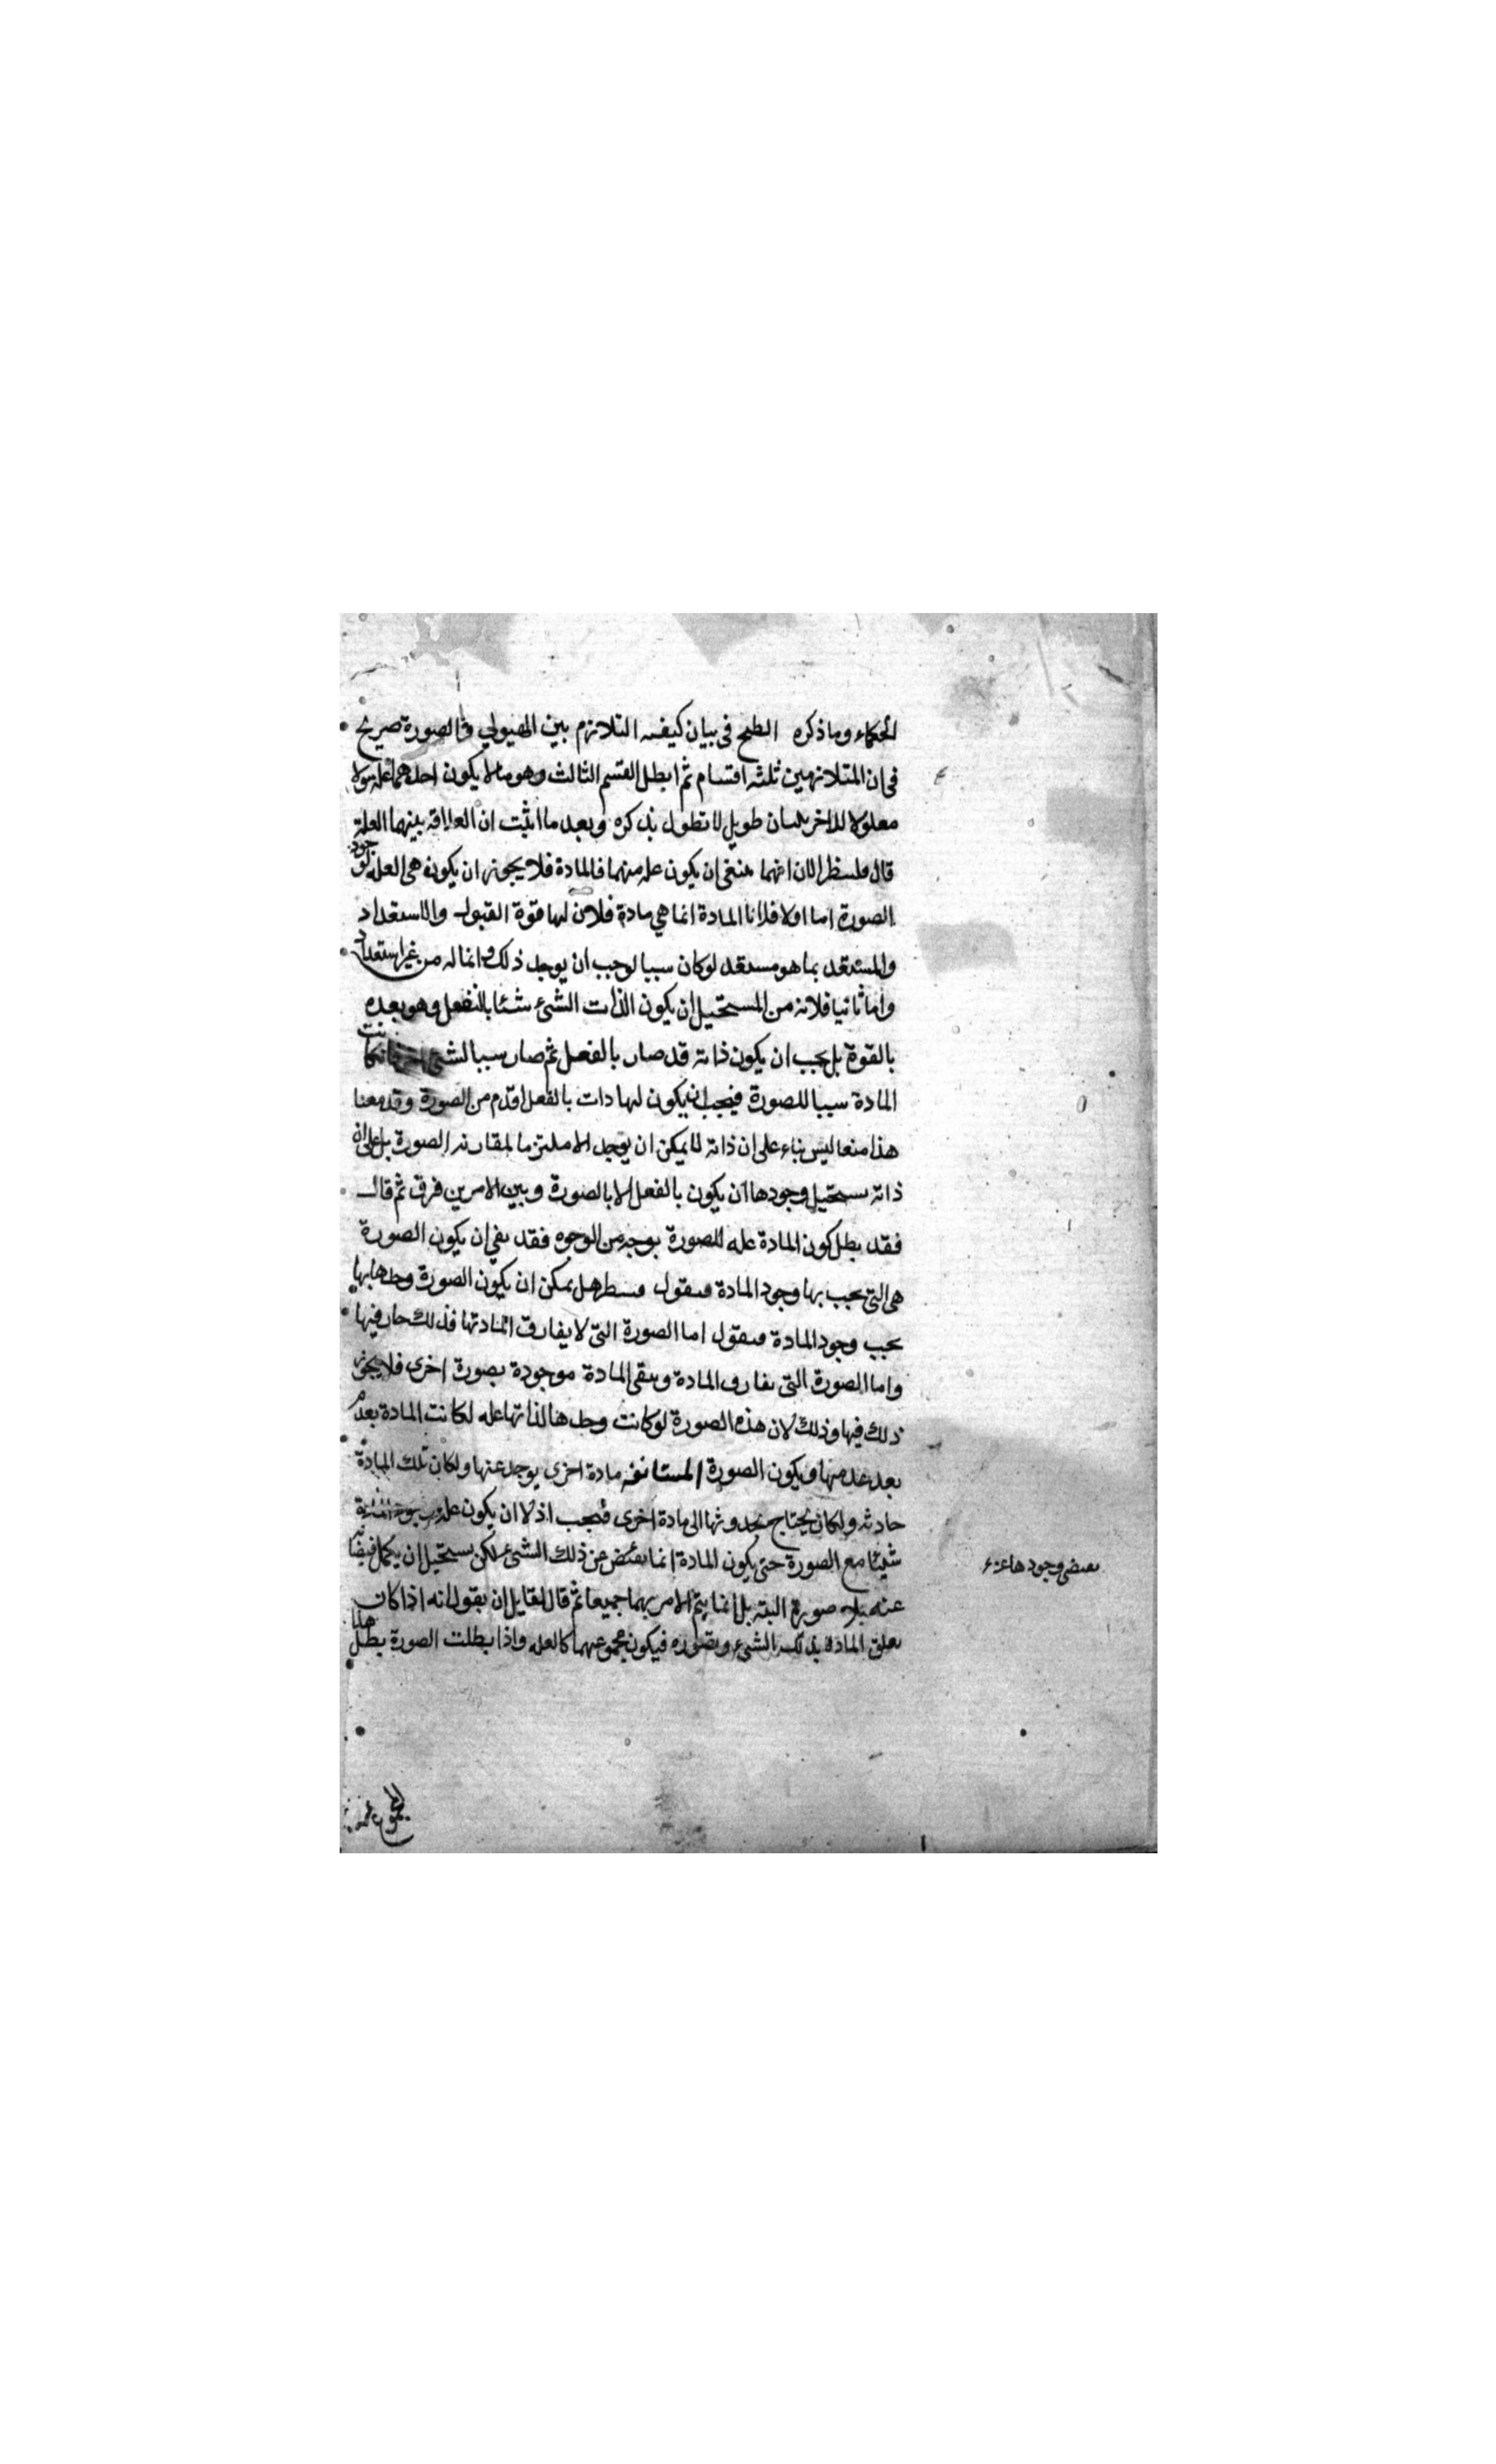 الحكماء وما ذكره الشيخ في بيان كيفيه التلازم بين الهيولي والصورة صريح
في ان المتلازمين ثلثه اقسام ثم ابطل القسم الثالث وهو ما لا يكون احدهما علة ولا
معلولا للاخر بلسان طويل لا نطول بذكره وبعد ما اثبت ان العلاقة بينهما العلة
قال فلسظر الان انهما ينبغي ان يكون عله منهما فالمادة فلا يجوز ان يكون هي العله لوجود
الصورة اما اولا فلانا المادة انما هي مادة فلان لها قوة القبول والاستعداد
والمستعد بما هو مستعد لو كان سببا لوجب ان يوجد ذلك دائما له من غير استعداد
واما ثانيا فلانه من المستحيل ان يكون الذات الشئ شئا بالفعل وهو بعده
بالقوة بل يجب ان يكون ذاته قد صار بالفعل ثم صار سببا لشئ اخر فان كانت
المادة سببا للصورة فيجب ان يكون لها ذات بالفعل اقدم من الصورة وقد منعنا
هذا منعا ليس بناء على ان ذاته لا يمكن ان يوجد الا ملتزما لمقارنه الصورة بل على ان
ذاته يستحيل وجودها ان يكون بالفعل الا بالصورة وبين الامرين فرق ثم قال
فقد بطل كون المادة عله للصورة بوجه من الوجوه فقد بقي ان يكون الصورة
هي التي يجب بها وجود المادة فنقول فسطر هل يمكن ان يكون الصورة وحدها بها
يجب وجود المادة فنقول اما الصورة التي لا يفارق المادتها فذلك جاز فيها
واما الصورة التي تفارق المادة وتبقى المادة موجودة بصورة اخرى فلا يجوز
ذلك فيها وذلك لان هذه الصورة لو كانت وحدها لذاتها عله لكانت المادة بعدم
بعد عدمها ويكون الصورة المستانفه مادة اخرى يوجد عنها ولكان تلك المادة
حادثه ولكان يحتاج بحدوثها الى مادة اخرى فيجب اذ لا ان يكون عله وجود المادة
شيئا مع الصورة حتى يكون المادة انما يفيض عن ذلك الشئ لكن يستحيل ان يكمل فيضا
يفيض وجودها عنه
عنه بلا صورة البته بل انما يتم الامر بهما جميعا ثم قال لقايل ان يقول انه اذا كان
تعلق المادة بذلك الشئ وبصوره فيكون مجموعهما كالعله واذا بطلت الصورة بطل هذا
المجموع